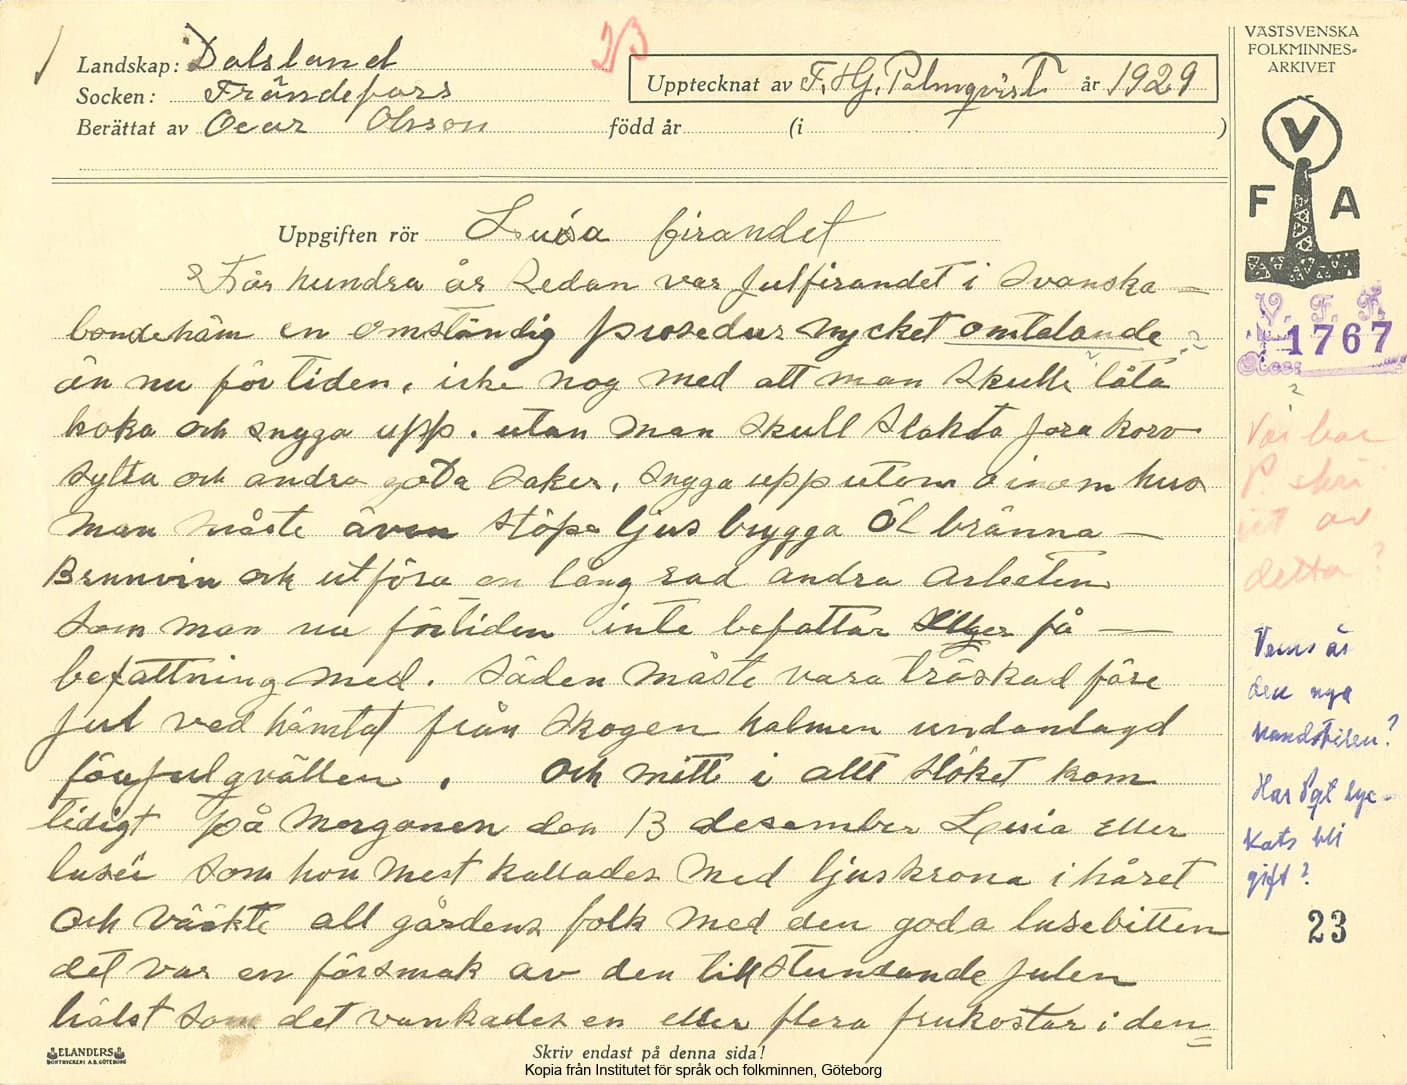 Landskap: Dalsland
Socken: Frändefors
Berättat av Oscar Olsson född år (i )
23
Upptecknat av F. Hj. Palmqvist år 1929
VÄSTSVENSKA
FOLKMINNES-
ARKIVET
V
F A
V. F. F.
1767
Uppgiften rör Lusia firandet
För hundra år sedan var julfirandet i Svenska
bondehäm en omständig prosedur mycket omtalande
än nu för tiden, icke nog med att man skulle låta
koka och snygga upp. utan man skull slakta jöra korv
sylta och andra goda saker, snygga upp utom o inom hus
man måste även stöpa ljus brygga Öl bränna
Brunvin och utföra en lång rad andra arbeten
som man nu förtiden inte befattar eller få
befattning med. Säden måste vara tröskad före
jul ved hämtat från skogen halmen undanlagd
före julqvällen. Och mitt i allt stöket kom
tidigt på morgonen den 13 desember Lusia eller
lusei som hon mest kallades med ljuskrona i håret
och väckte all gårdens folk med den goda lusebitten
det var en försmak av den tillstundande julen
hälst som det vankades en eller flera frukostar i den
Var har
P. skri
vit av
detta?
Vems är
den nya
handstilen?
Har Pqt lyc-
kats bli
gift?
23
ELANDERS
BOKTRYCKERI A.B. GÖTEBORG
Skriv endast på denna sida!
Kopia från Institutet för språk och folkminnen, Göteborg